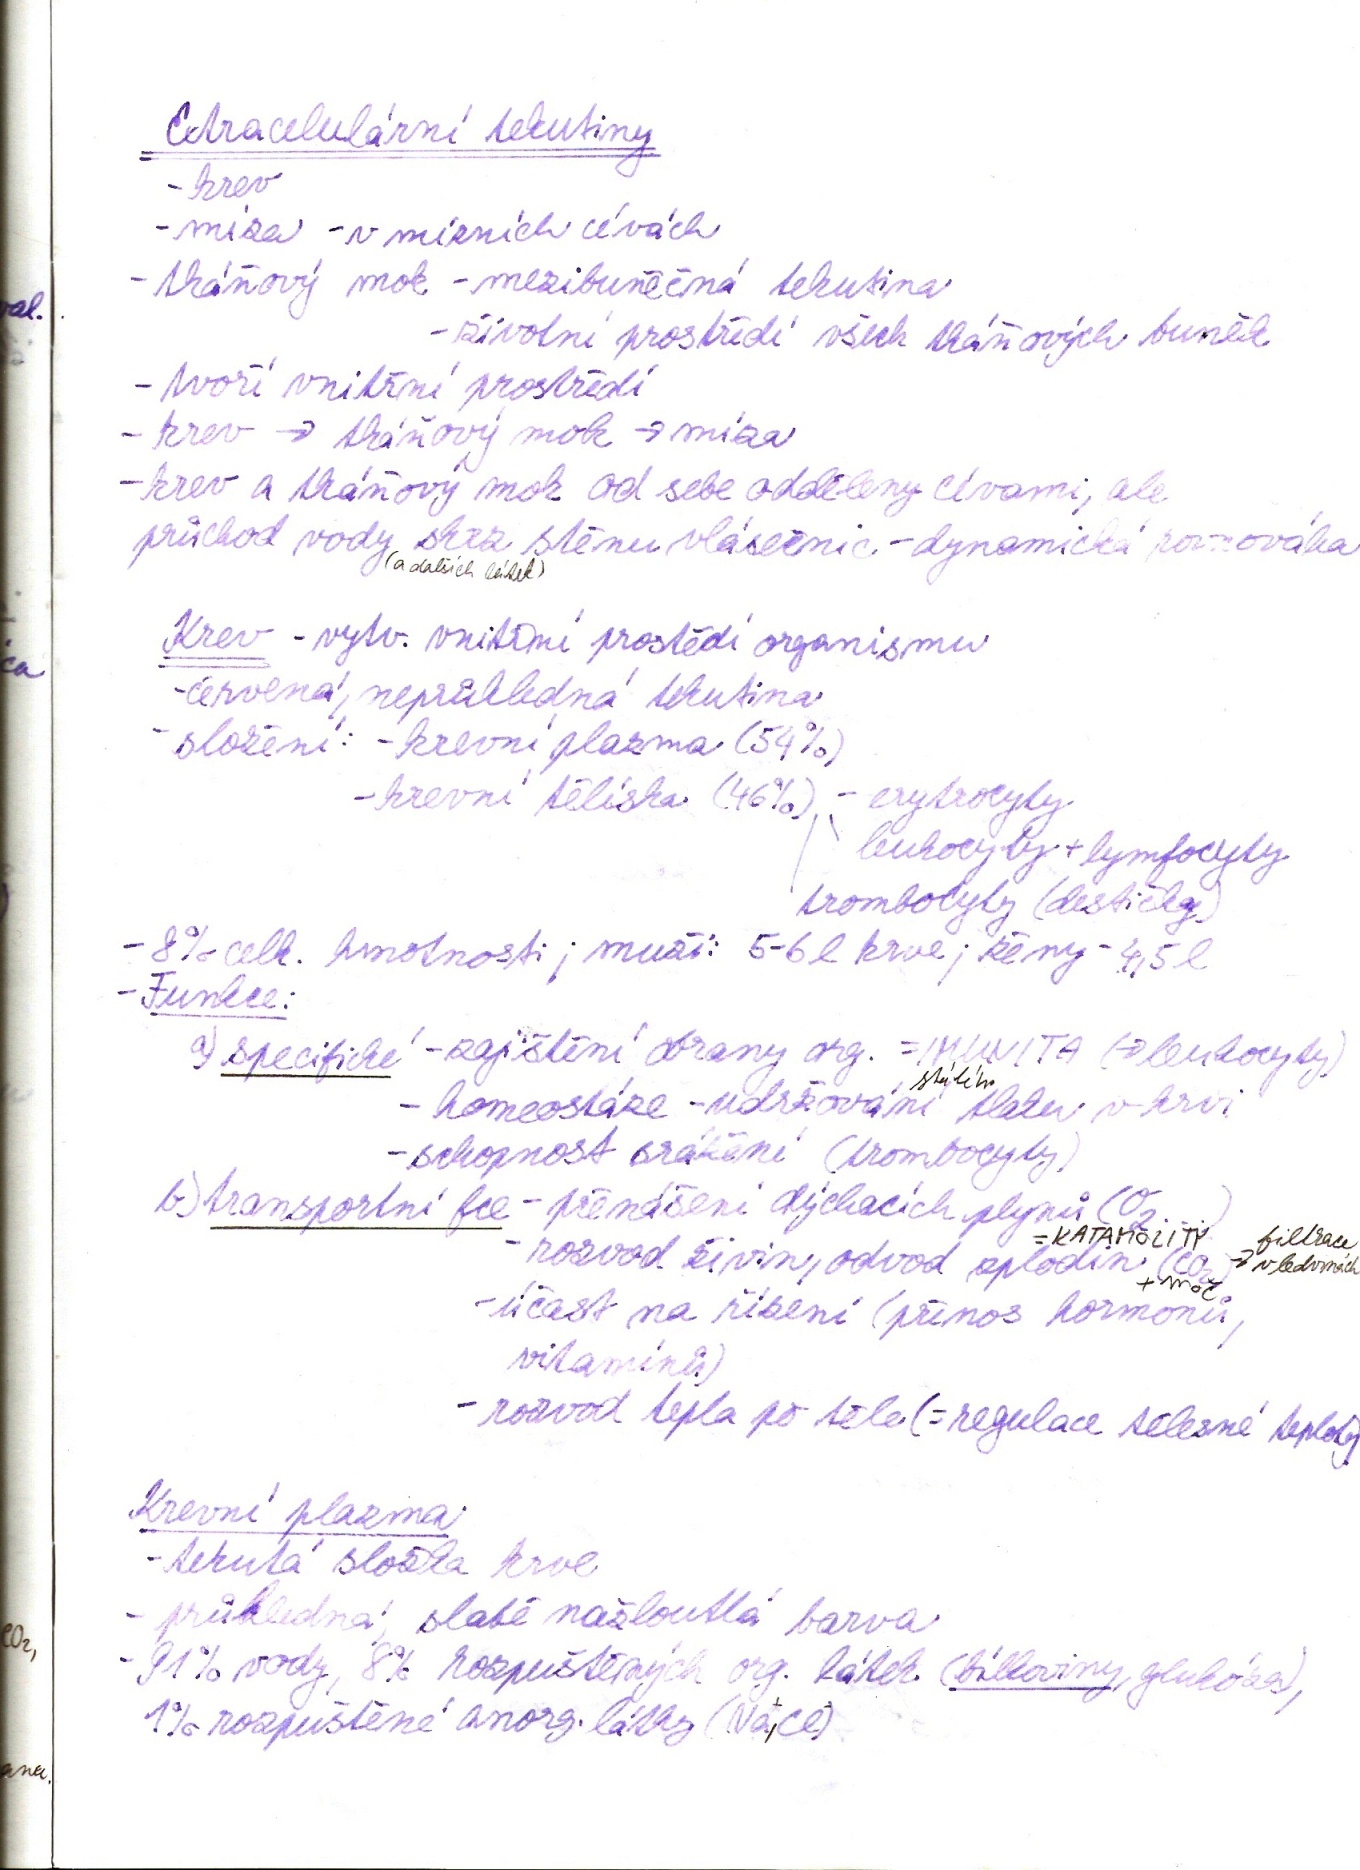 Extracelulární tekutiny
- krev
- míza - v mízních cévách
- tkáňový mok - mezibuněčná tekutina
- životní prostředí všech tkáňových buněk
- tvoří vnitřní prostředí
- krev → tkáňový mok → míza
- krev a tkáňový mok od sebe odděleny cévami, ale
průchod vody skrz stěnu vlásečnic - dynamická rovnováha
(a dalších látek)
Krev - vytv. vnitřní prostědí organismu
- červená, neprůhledná tekutina
- složení: - krevní plazma (54%)
- krevní tělíska (46%) - erytrocyty
leukocyty + lymfocyty
trombocyty (destičky)
- 8% celk. hmotnosti; muži: 5-6 l krve; ženy - 4,5 l
- Funkce:
a) specifické - zajištění obrany org. = IMUNITA (→ leukocyty)
stálého
- homeostáze - udržování tlaku v krvi
- schopnost srážení (trombocyty)
b) transportní fce - přenášení dýchacích plynů (O2)
= KATABOLITY filtrace
- rozvod živin, odvod zplodin (CO2) → v ledvinách
+ moč
- účast na řízení (přenos hormonů,
vitamínů)
- rozvod tepla po těle (= regulace tělesné teploty)
Krevní plazma
- tekutá složka krve
- průhledná, slabě nažloutlá barva
- 91% vody, 8% rozpuštěných org. látek (bílkoviny, glukóza),
1% rozpuštěné anorg. látky (Na+, Cl-)
val.
ca
CO2,
ana.